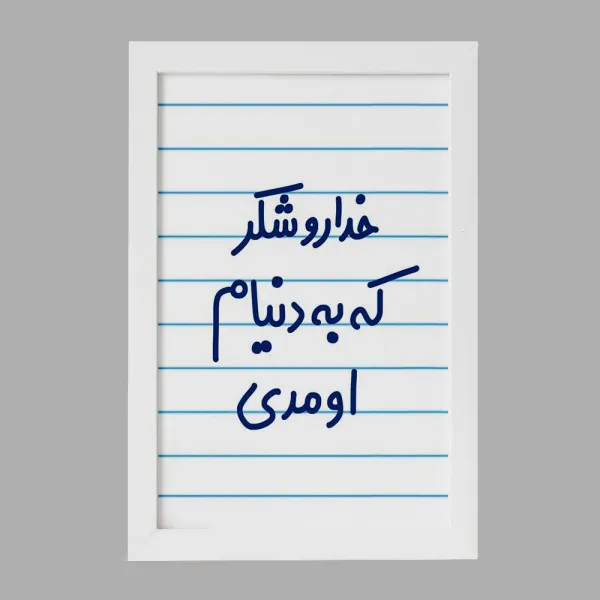 خدارو شکر
که به دنیام
اومدی